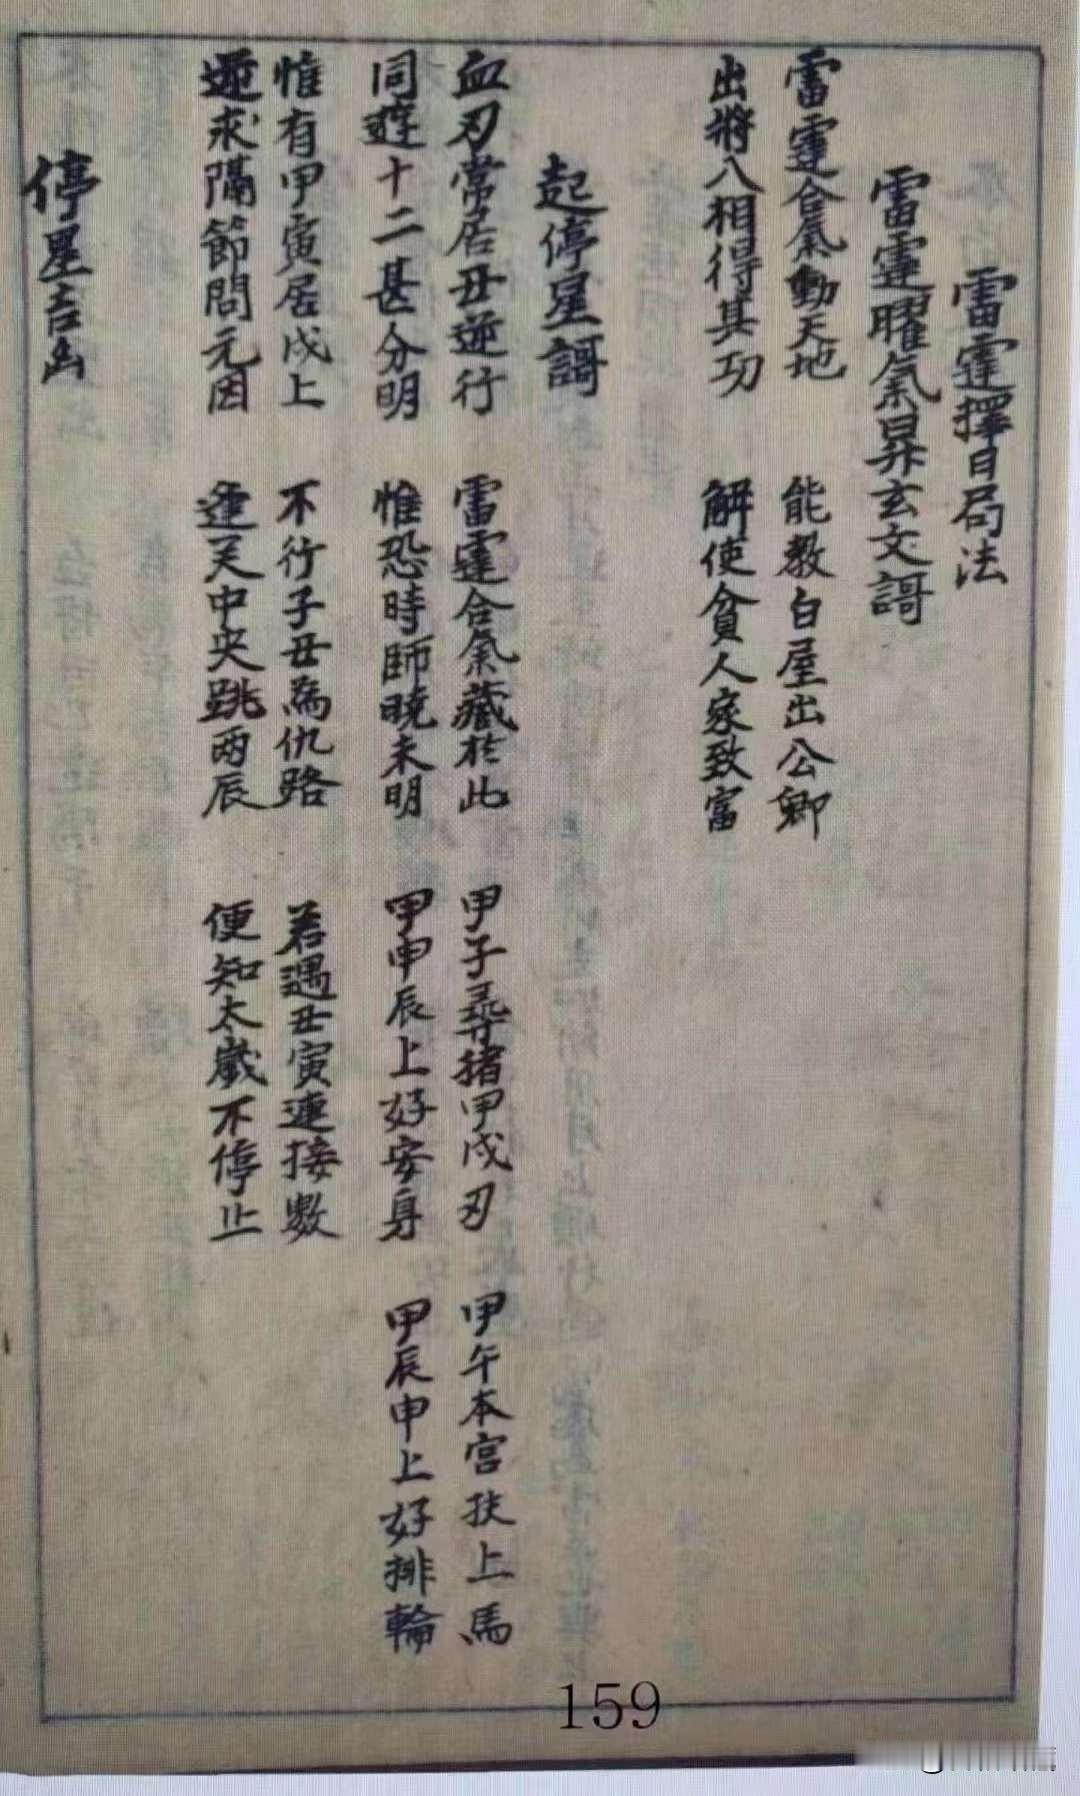 雷霆擇日局法
雷霆曜氣昇玄文謌
雷霆合氣動天地 能教白屋出公卿
出將入相得其功 解使貧人家致富
起停星謌
血刃常居丑逆行 雷霆合氣藏於此 甲子尋猪甲戌刃 甲午本宮扶上馬
同遊十二甚分明 惟恐時師曉未明 甲申辰上好安身 甲辰申上好排輪
惟有甲寅居戌上 不行子丑為仇路 若遇丑寅連接數
逆求隔節問元因 逢关中央跳两辰 便知太歲不停止
停星吉凶
159